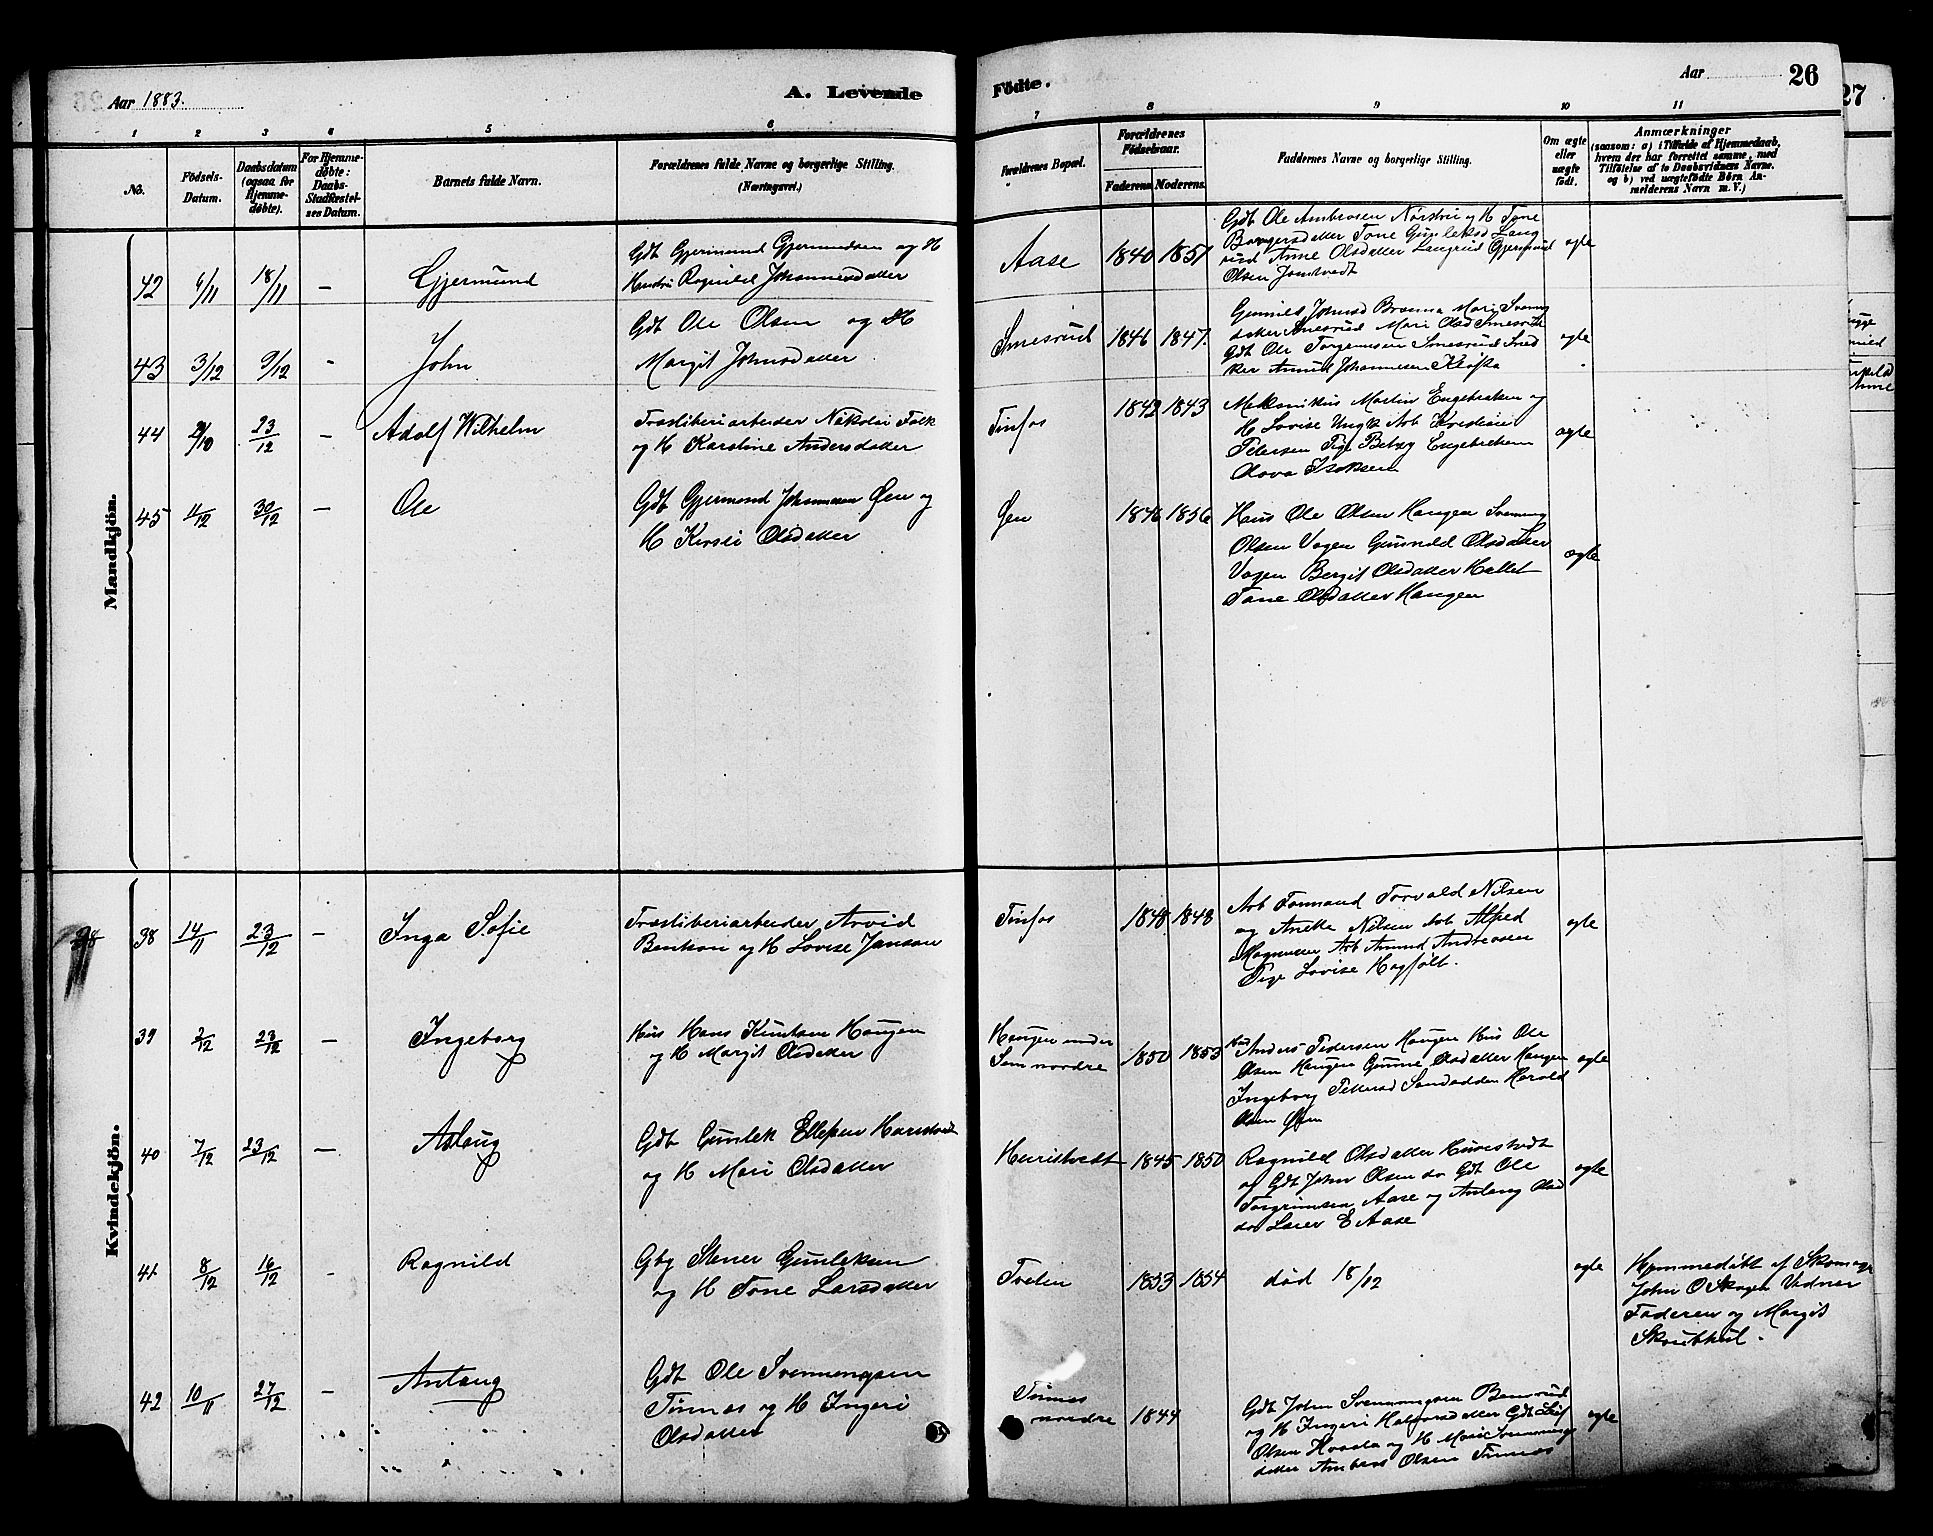 Aar 1883.
A. Levende
Födte.
Aar
26
27
1
2
3
4
5
6
7
8
9
10
11
No.
Födsels-
Datum.
Daabsdatum
(ogsaa for
Hjemme-
döbte).
For Hjemme-
döbte:
Daabs-
Stadfæstel-
ses Datum.
Barnets fulde Navn.
Forældrenes fulde Navne og borgerlige Stilling.
(Næringsvei.)
Forældrenes Bopæl.
Forældrenes
Födselsaar.
Faderens
Moderens.
Faddernes Navne og borgerlige Stilling.
Om ægte
eller
uægte
født.
Anmærkninger
(saasom: a) i Tilfælde af Hjemmedaab,
hvem der har forrettet samme, med
Tilføielse af to Daabsvidners Navne.
og b) ved uægtefødte Börn An-
melderens Navn m. V.)
Mandkjön.
42 6/11 18/11 — Gjermund
Gdt Gjermund Gjermundsen og H
Ragnild Johannesdatter
Aase 1840 1851
Gdt Ole Ambrosen og H Tone
Tone Gunleksd Lang
rud Anne Olsdatter Langrud Gjermund
Olsen Jomtvedt
ægte
43 3/12 9/12 John
Gdt Ole Olsen og H
Margit Johnsdatter
Smesrud 1846 1847.
Gunnild Johnsd Mari Svennug
datter Smesrud Mari Olsd Smesrud
Gdt Ole Torgrimsen Smesrud Sned
ker Amund Johannesen Kløfta
ægte
44 23/12 — Adolf Wilhelm
Træsliberiarbeider Nikolai Falk
og H Karoline Andersdatter
Tinfos 1842 1843
Mekanikus Martin Engebretsen og
H Lovise Ungk Arb Kristian
Petersen Pige Betzy Engebretsen
Isaksen
ægte
45 11/12 30/12 — Ole
Gdt Gjermund Johannesen Øen og
H Kirsti Olsdatter
Øen 1846 1856
Huus Ole Olsen Haugen Svennug
Olsen Vagen Gunnild Olsdatter
Vagen Bergit Olsdatter
Tone Olsdatter Haugen
ægte
Kvindekjön.
38 38 14/11 23/12 — Inga Sofie
Træsliberiarbeider Arvid
og H Lovise Janson
Tinfos 1848 1848
Arb Formand Torvald Nilsen
og Anette Nilsen Arb Alfred
Magnussen Arb Amund Andreasen
Pige Lovise
ægte
39 2/12 23/12 — Ingeborg
Hus Hans Knutsen Haugen
og H Margit Olsdatter
Haugen under
Sem nordre
1850 1853
Anders Pedersen Haugen Hus Ole
Olsen Haugen Gunne Olsdatter Haugen
Ingeborg Pettersd Herold
Olsen Øen
ægte
40 7/12 23/12 — Aslaug
Gdt Gunlek Ellefsen
og H Mari Olsdatter
1845 1850
Ragnild Olsdatter
og Gdt John Olsen do Gdt Ole
Torgrimsen Aase og Aslaug Olsd
do E Aase
ægte
41 8/12 16/12 - Ragnild
Gbg Stener Gunleksen
og H Tone Larsdatter
Tveten 1853 1854
död 18/12
ægte
Hjemmedöbt af Skomager
John O Skogen Vidner
Faderen og Margit
42 10/11 27/12 — Aslaug
Gdt Ole Svennungsen
Tinnes og H Ingeri
Olsdatter
Tinnes
nordre
1844
Gdt John Svennungsen Bensrud
og H Ingeri Halvorsdatter Gdt Leif
Olsen og H Mari Svennungs
datter Ambros Olsen Tinnes
ægte